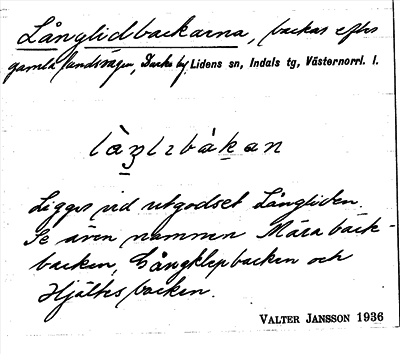 Långlidbackarna, backar efter
gamla landsvägen, Backe by, Lidens sn, Indals tg, Västernorrl. l.
Ligger vid utgodset Långliden.
Se även namnen Märabäck-
backen, Gångklepbacken och
Hjältesbacken.
VALTER JANSSON 1936